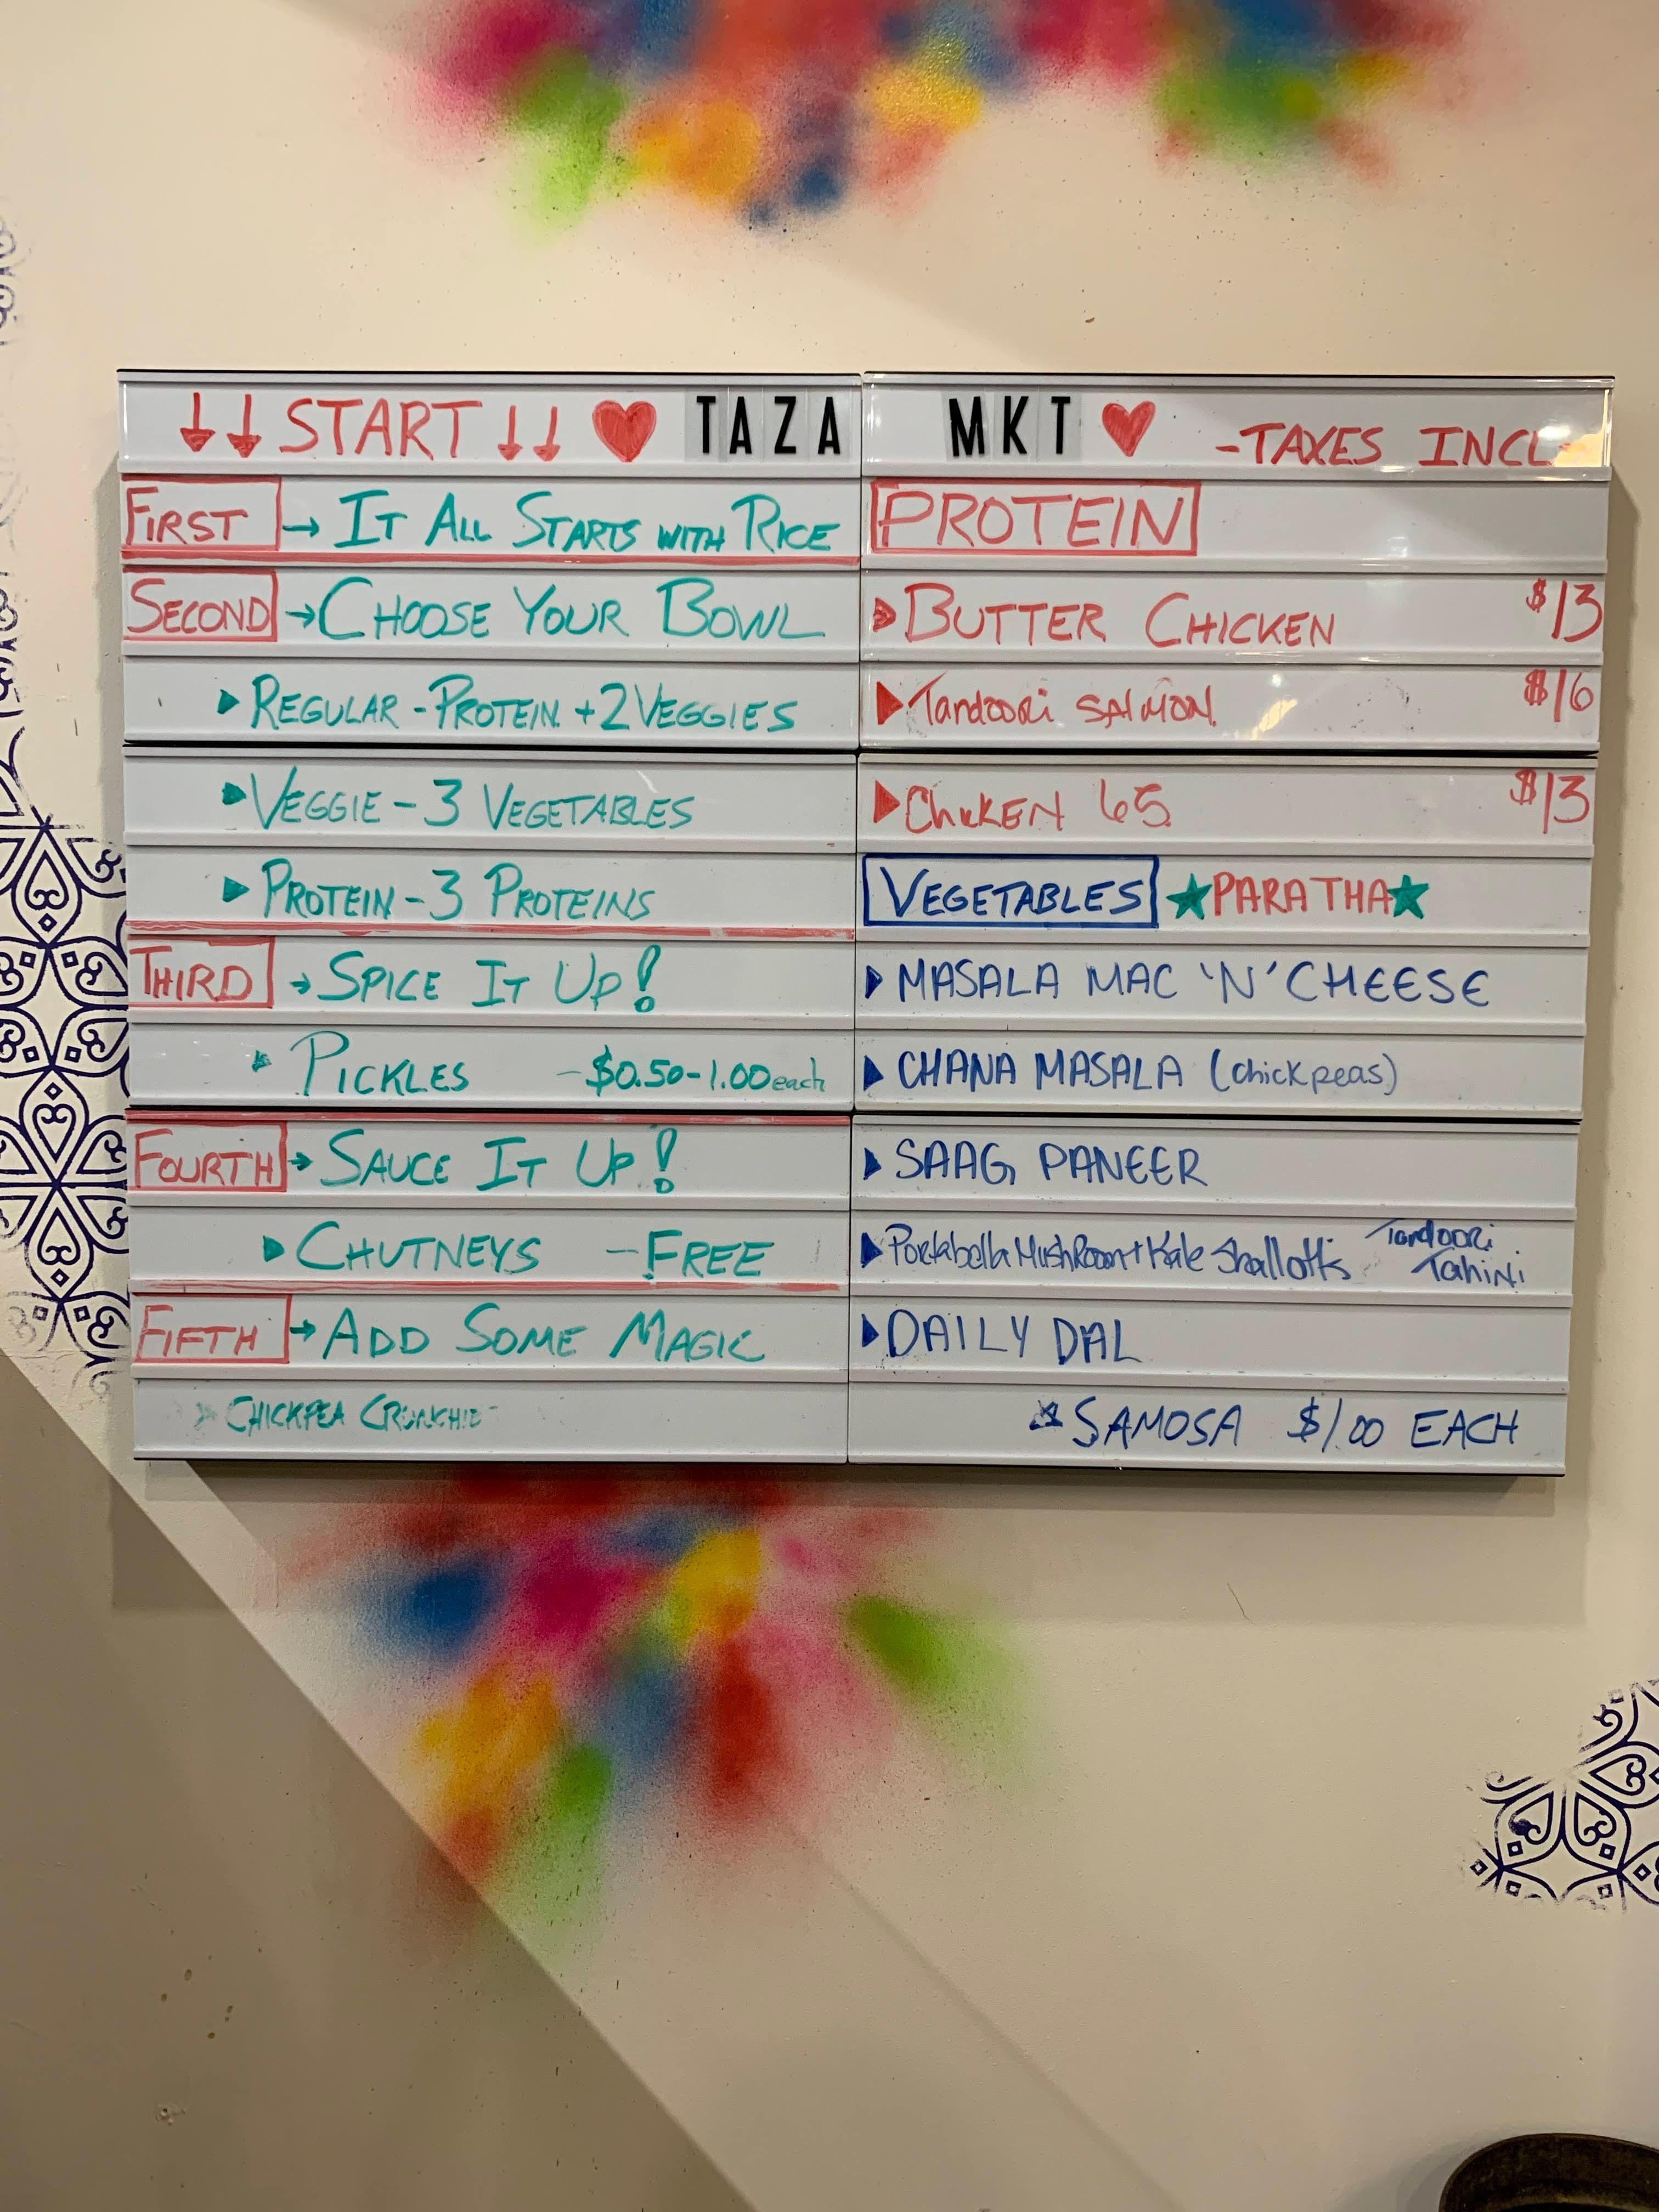 ↓↓ START ↓↓ ♥ TAZA
FIRST → IT ALL STARTS WITH RICE
SECOND → CHOOSE YOUR BOWL
▸ REGULAR - PROTEIN + 2 VEGGIES
▸ VEGGIE - 3 VEGETABLES
▸ PROTEIN - 3 PROTEINS
THIRD → SPICE IT UP!
▸ PICKLES - $0.50-1.00 each
FOURTH → SAUCE IT UP!
▸ CHUTNEYS - FREE
FIFTH → ADD SOME MAGIC
▸ CHICKPEA CRUNCHIE
MKT ♥ -TAXES INCL-
PROTEIN
▸ BUTTER CHICKEN $13
▸ Tandoori SALMON $16
▸ ChicKEN 65 $13
VEGETABLES ★PARATHA★
▸ MASALA MAC 'N' CHEESE
▸ CHANA MASALA (chickpeas)
▸ SAAG PANEER
▸ Portabella MushRoom + Kale Shallotts Tandoori Tahini
▸ DAILY DAL
▸ SAMOSA $1.00 EACH